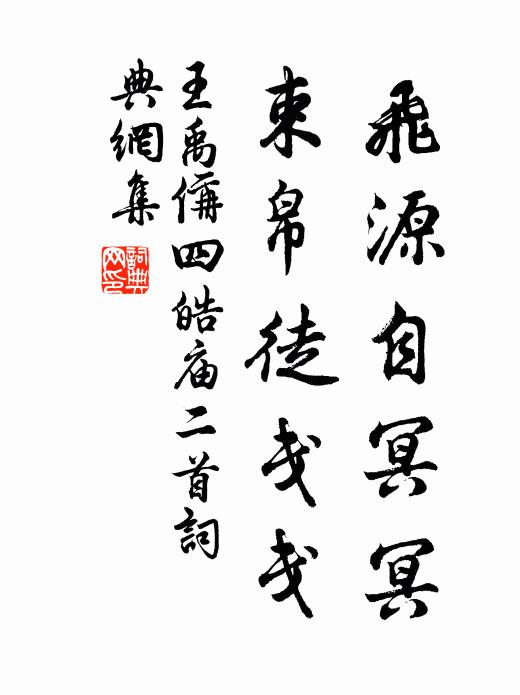 飛源自冥冥
束帛徒戋戋
王禹偁四皓庙二首詞
典網集
詞典
网印